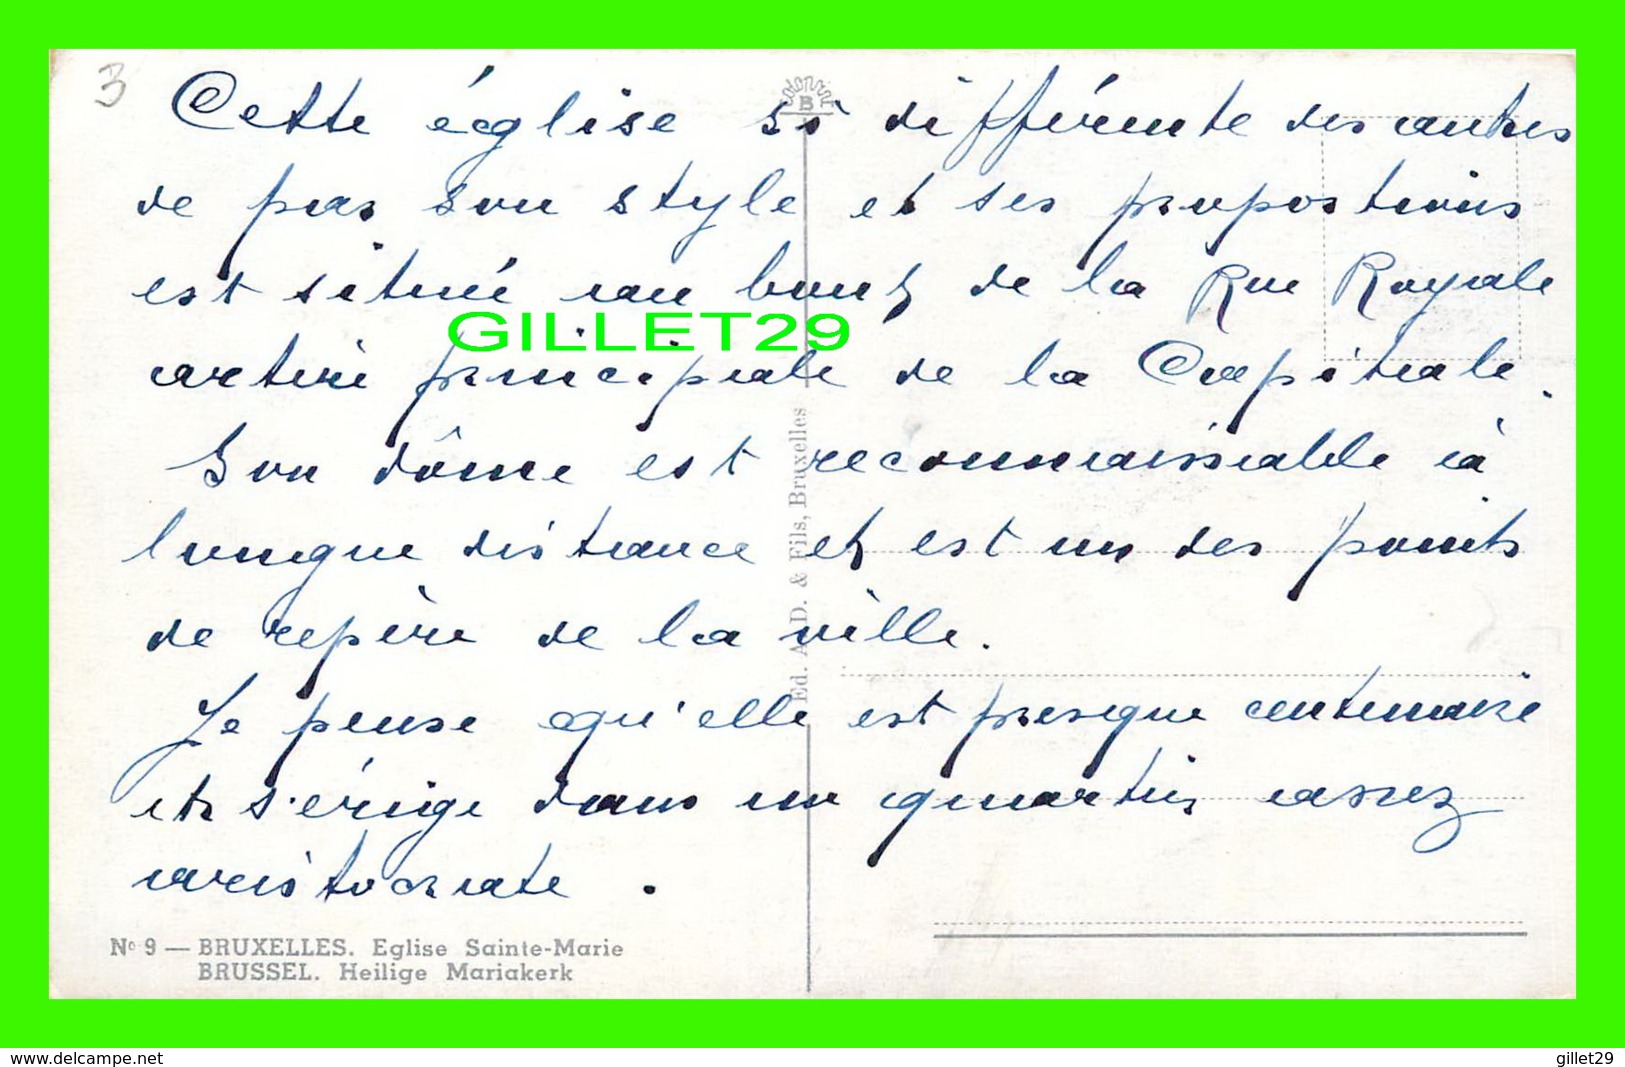 3
B
Cette église si différente des autres
de par son style et ses proportions
est située au bout de la Rue Royale
GILLET29
artère principale de la Capitale.
Son dôme est reconnaissable à
longue distance et est un des points
de repère de la ville.
Je pense qu'elle est presque centenaire
et s'érige dans un quartier assez
aristocrate.
Ed. A. D. & Fils, Bruxelles
Nº 9 — BRUXELLES. Eglise Sainte-Marie
BRUSSEL. Heilige Mariakerk
www.delcampe.net
gillet29